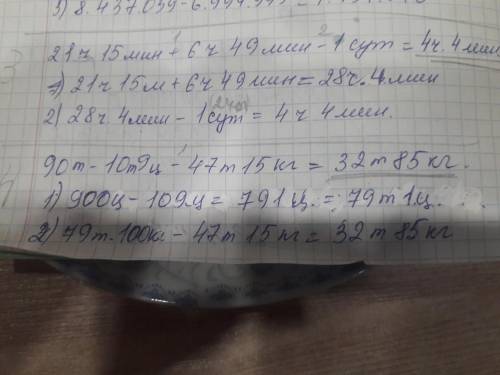 3) 8.437.039-6.994.
21ч 15мин + 6ч 49мин - 1сут = 4ч. 4мин
1) 21ч 15м + 6ч 49мин = 28ч. 4мин
2) 28ч 4мин - 1сут = 4ч 4мин.
90т - 10т9ц - 47т 15кг = 32т 85кг.
1) 900ц - 109ц = 791ц. = 79т 1ц.
2) 79т.100кг - 47т 15кг = 32т 85кг